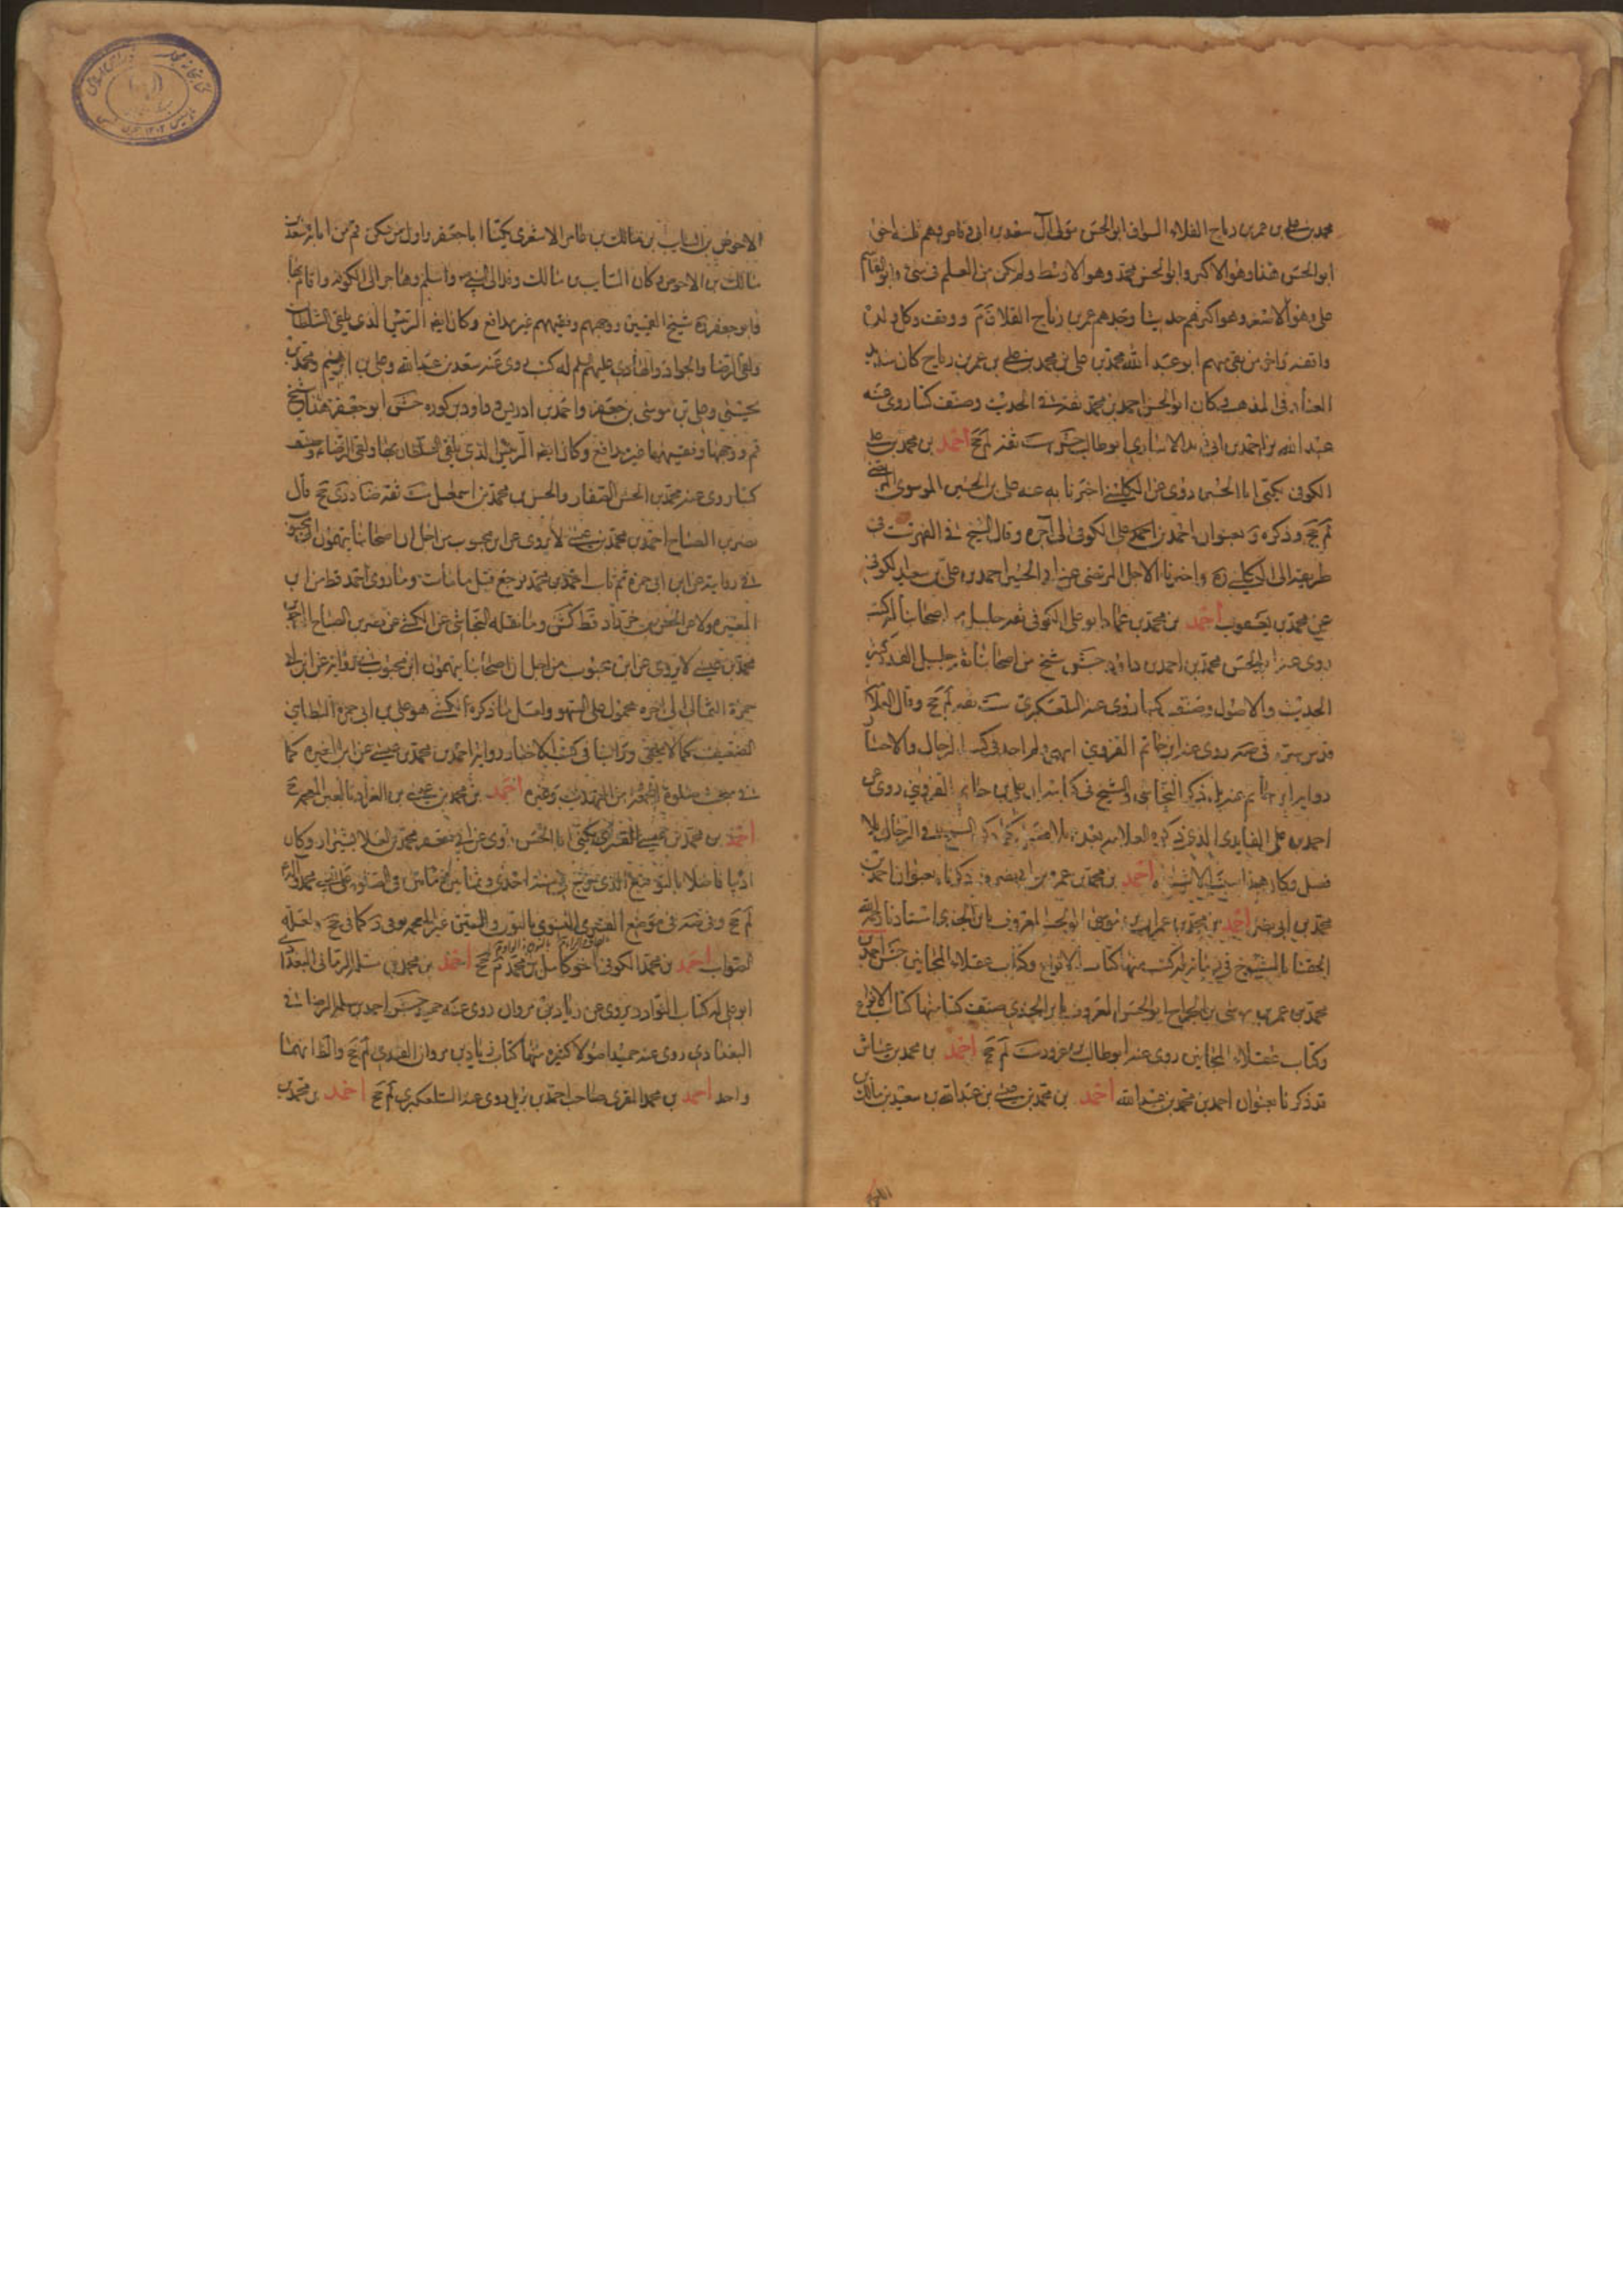 محمد بن علي بن عمر بن رباح القلاء السواق ابو الحسن مولى آل سعد بن ابي وقاص وهم ثلثة اخوة
ابو الحسن هذا وهو الاكبر وابو الحسن محمد وهو الاوسط ولم يكن من العلم في شئ وابو القاسم
علي وهو الاصغر وهو اكثرهم حديثا وجدهم عمر بن رباح القلا ووقف وكل ولده
واقفه واخر من بقي منهم ابو عبد الله محمد بن علي بن محمد بن علي بن عمر بن رباح كان شديد
العناد في المذهب وكان ابو الحسن احمد بن محمد ثقة في الحديث وصنف كتبا روى عنه
عبد الله بن احمد بن ابي زيد الانباري ابو طالب جش ست ثقة لم جخ احمد بن محمد بن علي
الكوفي يكنى ابا الحسين روى عن الكليني اخبرنا به عنه علي بن الحسين الموسوي المرتضى
لم جخ وذكره بعنوان احمد بن احمد علي الكوفي الى آخره وقال الشيخ في الفهرست في
طريقه الى الكليني واخبرنا الاجل المرتضى عن ابي الحسين احمد بن علي بن سعيد الكوفي
عن محمد بن يعقوب احمد بن محمد بن عمار ابو علي الكوفي ثقه جليل من اصحابنا له كتب
روى عنه ابو الحسن محمد بن احمد بن داود جش شيخ من اصحابنا ثقة جليل القدر كثير
الحديث والاصول وصنف كتبا روى عنه التلعكبري ست ثقه لم جخ وقال العلامة
قدس سره في صه روى عنه ابن حاتم القزويني انتهى ولم اجد في كتب الرجال والاخبار
رواية ابن حاتم عنه بل ذكر النجاشي والشيخ في كتابيهما ان علي بن حاتم القزويني روى عن
احمد بن علي الفايدي الذي ذكره العلامة بعده بلا فصل كما ذكر الشيخ في الرجال بلا
فصل وكان هذا سبب الاشتباه احمد بن محمد بن عمرو بن ابي نصر ذكرناه بعنوان احمد بن
محمد بن ابي نصر احمد بن محمد بن عمران بن موسى ابو الحسن المعروف بابن الجندي استادنا رحمه الله
الحقنا بالشيوخ في زمانه له كتب منها كتاب الانواع وكتاب عقلاء المجانين جش احمد بن
محمد بن عمر بن موسى بن الجراح ابو الحسن المعروف بابن الجندي صنف كتبا منها كتاب الانواع
وكتاب عقلاء المجانين روى عنه ابو طالب بن غرور ست لم جخ احمد بن محمد بن عياش
قد ذكرنا بعنوان احمد بن محمد بن عبد الله احمد بن محمد بن عيسى بن عبد الله بن سعد بن مالك بن
الاحوص بن السايب بن مالك بن عامر الاشعري يكنى ابا جعفر واول من سكن قم من آبائه سعد بن
مالك بن الاحوص وكان السايب بن مالك وفد الى النبي واسلم وهاجر الى الكوفة واقام بها
وابو جعفر شيخ القميين ووجههم وفقيههم غير مدافع وكان ايضا الرئيس الذي يلقى السلطان
ولقى الرضا والجواد والهادي عليهم السلم له كتب روى عنه سعد بن عبد الله وعلي بن ابراهيم ومحمد بن
يحيى وعلي بن موسى بن جعفر واحمد بن ادريس وداود بن كوره جش ابو جعفر هذا شيخ
قم ووجهها وفقيهها غير مدافع وكان ايضا الرئيس الذي يلقى السلطان بها ولقى الرضا وصنف
كتبا روى عنه محمد بن الحسن الصفار والحسن بن محمد بن اسمعيل ست ثقة ضا د دي جخ قال
نصر بن الصباح احمد بن محمد بن عيسى لا يروى عن ابن محبوب من اجل ان اصحابنا يتهمون ابن محبوب
في روايته عن ابن ابي حمزة ثم تاب احمد بن محمد فرجع قبل ما مات وما روى احمد قط من ابن
المغيره ولا عن الحسن بن خرزاد قط كش وما نقله النجاشي عن الكشي عن نصر بن الصباح
محمد بن عيسى لا يروى عن ابن محبوب من اجل ان اصحابنا يتهمون ابن محبوب في روايته عن ابي
حمزة الثمالي الى آخره محمول على السهو واصل ما ذكره الكشي هو علي بن ابي حمزة البطايني
الضعيف كما لا يخفى وراينا في كتب الاخبار رواية احمد بن محمد بن عيسى عن ابن المغيره كما
في مبحث صلوة من التهذيب وغيره احمد بن محمد بن عيسى بن الغراد بالغين المعجمة
احمد بن محمد بن عيسى القسري يكنى ابا الحسن روى عن ابي جعفر محمد بن العلا بشيراز وكان
اديبا فاضلا بالتوقيع الذي خرج في سنة احدى وثمانين ومائتين في الصلوة على النبي محمد وآله
لم جخ وفي صه في موضع القسري الفسوي بالنون في السين غير المعجمه وفي د كما في جخ ولعله
الصواب احمد بن محمد الكوفي اخو كامل بن محمد لم جخ احمد بن محمد بن سلمة الرماني البغدادي
ابو علي له كتاب النوادر يروى عن زياد بن مروان روى عنه حميد جش احمد بن سلمة الرصافي
البغدادي روى عنه حميد اصولا كثيره منها كتاب زياد بن مروان القندي لم جخ والظ انهما
واحد احمد بن محمد المقري صاحب احمد بن بديل روى عنه التلعكبري لم جخ احمد بن محمد بن